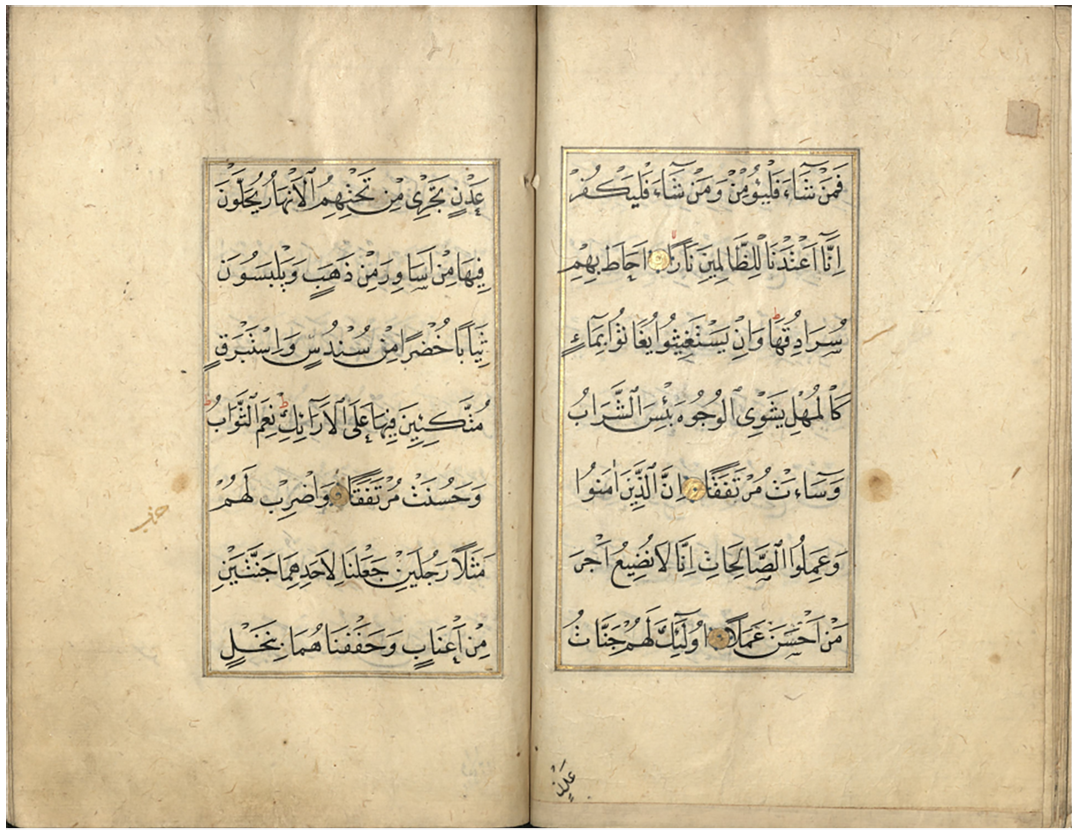 فَمَنْ شَٓاءَ فَلْيُؤْمِنْ وَمَنْ شَٓاءَ فَلْيَكْفُرْ
اِنَّٓا اَعْتَدْنَا لِلظَّالِمِينَ نَارًا اَحَاطَ بِهِمْ
سُرَادِقُهَا وَاِنْ يَسْتَغِيثُوا يُغَاثُوا بِمَٓاءٍ
كَالْمُهْلِ يَشْوِى الْوُجُوهَ بِئْسَ الشَّرَابُ
وَسَٓاءَتْ مُرْتَفَقًا اِنَّ الَّذِينَ اٰمَنُوا
وَعَمِلُوا الصَّالِحَاتِ اِنَّا لَا نُضِيعُ اَجْرَ
مَنْ اَحْسَنَ عَمَلًا اُولٰٓئِكَ لَهُمْ جَنَّاتُ
عَدْنٍ
عَدْنٍ تَجْرِى مِنْ تَحْتِهِمُ الْاَنْهَارُ يُحَلَّوْنَ
فِيهَا مِنْ اَسَاوِرَ مِنْ ذَهَبٍ وَيَلْبَسُونَ
ثِيَابًا خُضْرًا مِنْ سُنْدُسٍ وَاِسْتَبْرَقٍ
مُتَّكِئِينَ فِيهَا عَلَى الْاَرَٓائِكِ نِعْمَ الثَّوَابُ
وَحَسُنَتْ مُرْتَفَقًا وَاضْرِبْ لَهُمْ
مَثَلًا رَجُلَيْنِ جَعَلْنَا لِاَحَدِهِمَا جَنَّتَيْنِ
مِنْ اَعْنَابٍ وَحَفَفْنَاهُمَا بِنَخْلٍ